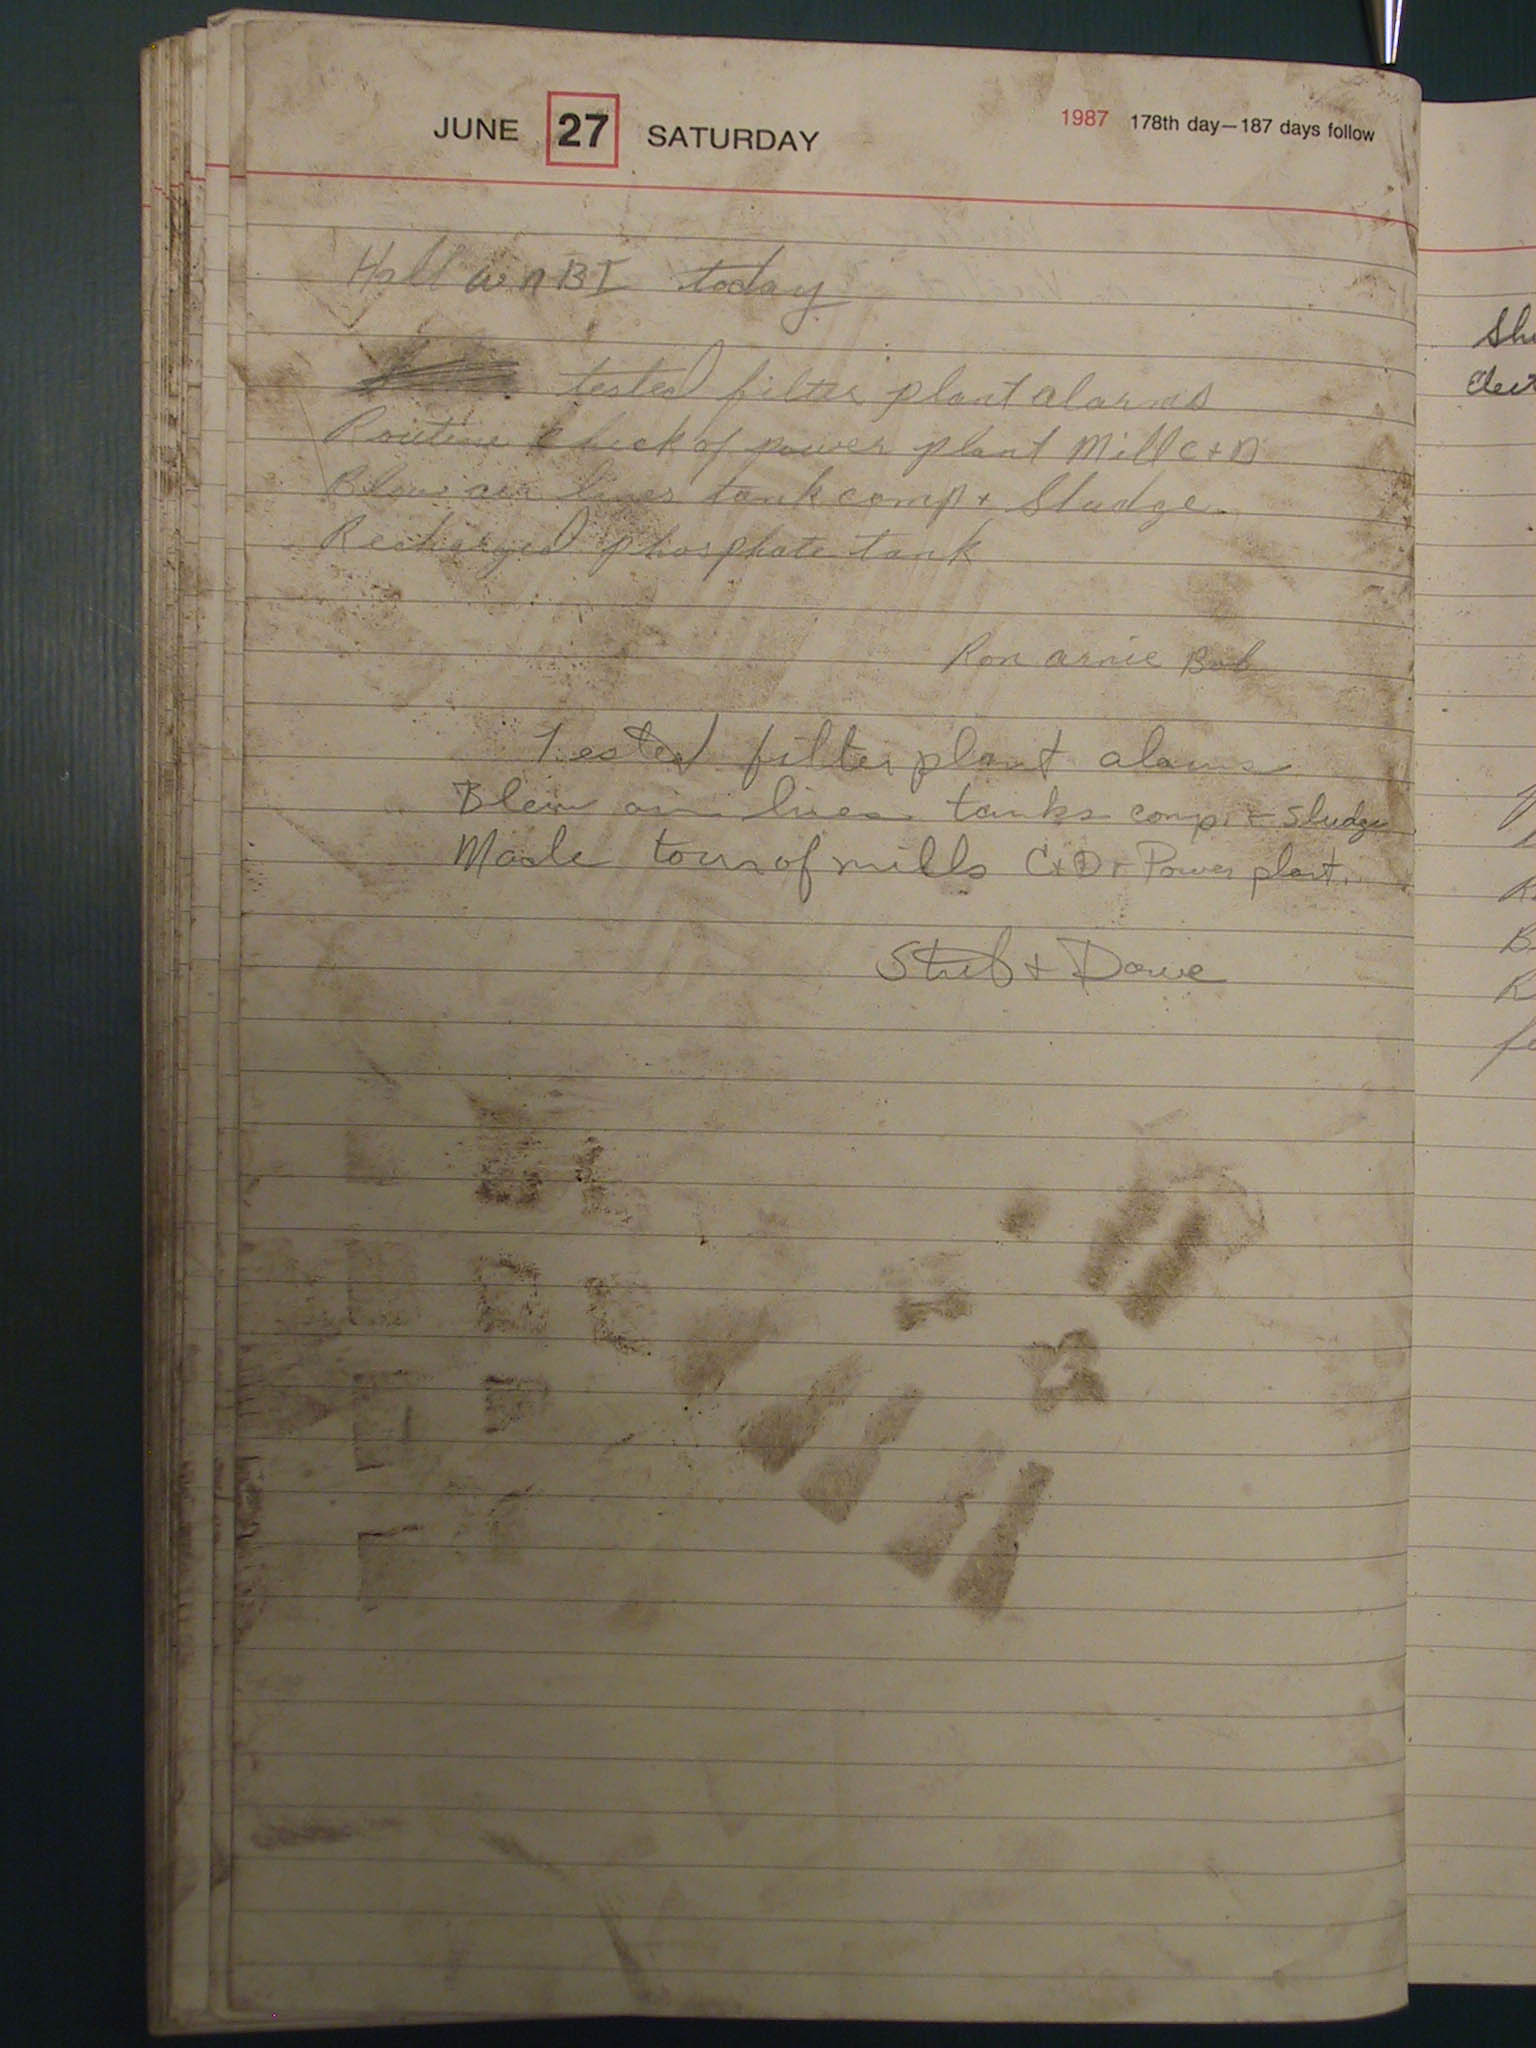 JUNE 27 SATURDAY 1987 178th day—187 days follow
Hall on BI today
tested filter plant alarms
Routine check of power plant Mill C+D
Blow air lines tank comp + Sludge
Recharged phosphate tank
Ron arnie Bob
Tested filter plant alarms
Blew air lines tanks comp. + sludge
Made tour of mills C+D+ Power plant.
Streb + Dowe
Sh
Elect
R
B
R
fe